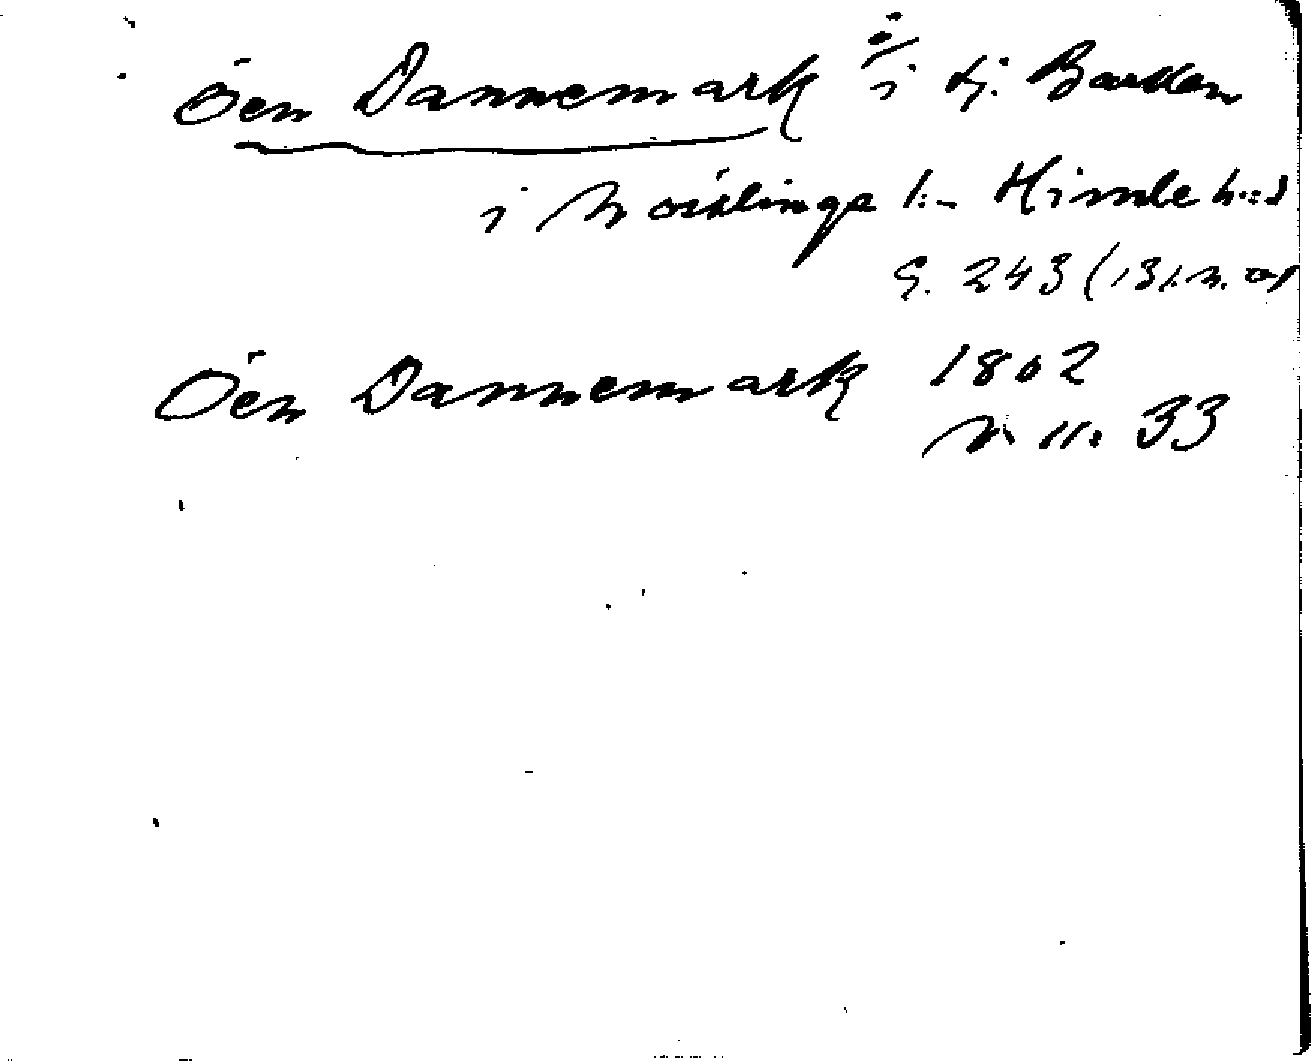 Öen Dannemark i tj. Barken
i Norlinge k:n Himle h:d
S. 243 (
Öen Dannemark 1802
N. 11. 33